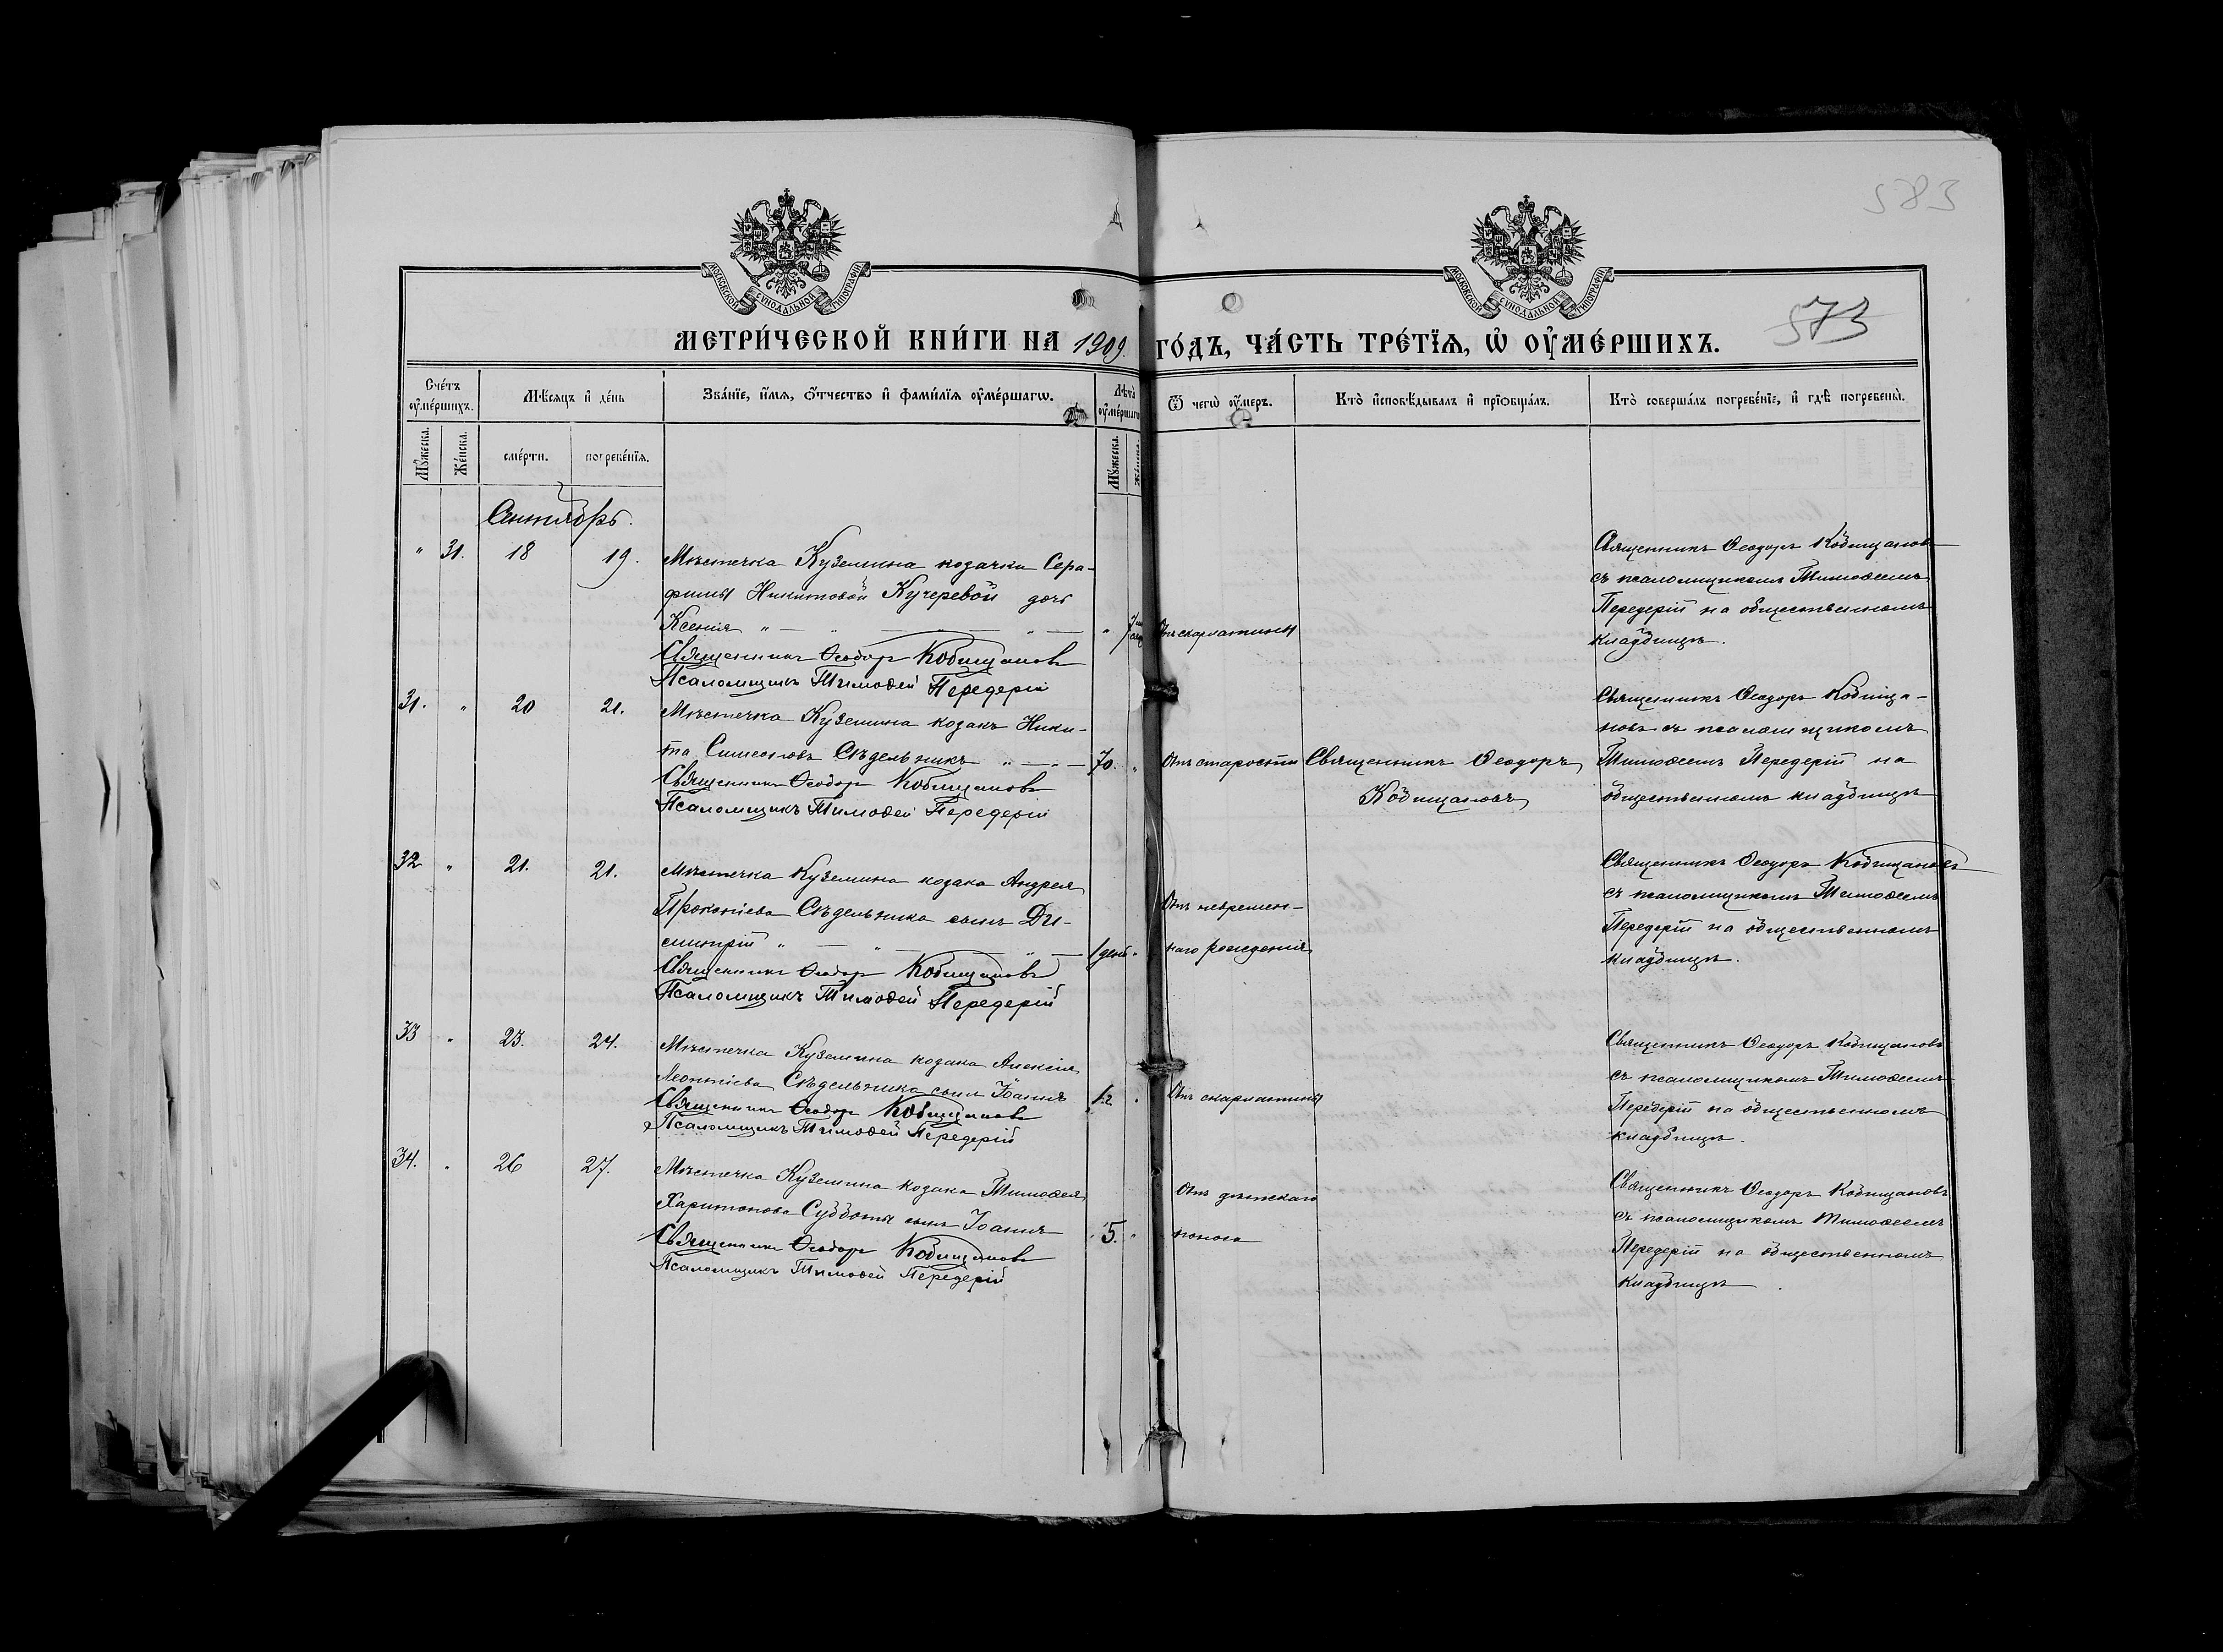 583
МОСКОВСКОЙ СѴНОДАЛЬНОЙ ТИПОГРАФІИ
МОСКОВСКОЙ СѴНОДАЛЬНОЙ ТИПОГРАФІИ
МЕТРИ́ЧЕСКОЙ КНИ́ГИ НА 1909 ГО́ДЪ, ЧА́СТЬ ТРЕ́ТЇѦ, Ѡ҆ ОУ҆МЕ́РШИХЪ.
573
Сче́тъ оу҆ме́ршихъ.
Мѣ́сяцъ и҆ де́нь
Зва́нїе, и҆́мѧ, ѻ҆́тчество и҆ фами́лїѧ оу҆ме́ршагѡ.
Лѣ́та оу҆ме́ршагѡ
Ѿ чегѡ̀ оу҆́меръ.
Кто̀ и҆сповѣ́дывалъ и҆ прїѡбща́лъ.
Кто̀ соверша́лъ погребе́нїе, и҆ гдѣ̀ погребены̀.
Мꙋ́жеска.
Же́нска.
сме́рти.
погребе́нїѧ.
Мꙋ́жеска.
Же́нска.
Сентябрь.
" 31. 18 19.
Мѣстечка Куземина козачки Сера-
фимы Никитовой Кучеревой дочь
Ксенія "
Священникъ Ѳеодоръ Кобищановъ
Псаломщикъ Тимоѳей Передерій
Отъ скарлатины
Священникъ Ѳеодоръ Кобищановъ
съ псаломщикомъ Тимоѳеемъ
Передерій на общественномъ
кладбищѣ.
31. " 20 21.
Мѣстечка Куземина козакъ Ники-
та Симеоновъ Сѣдельникъ " 70. "
Священникъ Ѳеодоръ Кобищановъ
Псаломщикъ Тимоѳей Передерій
Отъ старости
Священникъ Ѳеодоръ
Кобищановъ
Священникъ Ѳеодоръ Кобища-
новъ съ псаломщикомъ
Тимоѳеемъ Передерій на
общественномъ кладбищѣ
32 " 21. 21.
Мѣстечка Куземина козака Андрея
Прокопіева Сѣдельника сынъ Ди-
митрій " 1 день "
Священникъ Ѳеодоръ Кобищановъ
Псаломщикъ Тимоѳей Передерій
Отъ невремен-
наго рожденія
Священникъ Ѳеодоръ Кобищановъ
съ псаломщикомъ Тимоѳеемъ
Передерій на общественномъ
кладбищѣ.
33 " 23. 24.
Мѣстечка Куземина козака Алексія
Леонтіева Сѣдельника сынъ Іоаннъ 12 "
Священникъ Ѳеодоръ Кобищановъ
Псаломщикъ Тимоѳей Передерій
Отъ скарлатины
Священникъ Ѳеодоръ Кобищановъ
съ псаломщикомъ Тимоѳеемъ
Передерій на общественномъ
кладбищѣ.
34. " 26 27.
Мѣстечка Куземина козака Тимоѳея
Харитонова Субботы сынъ Іоаннъ 5. "
Священникъ Ѳеодоръ Кобищановъ
Псаломщикъ Тимоѳей Передерій
Отъ дѣтскаго
поноса
Священникъ Ѳеодоръ Кобищановъ
съ псаломщикомъ Тимоѳеемъ
Передерій на общественномъ
кладбищѣ.